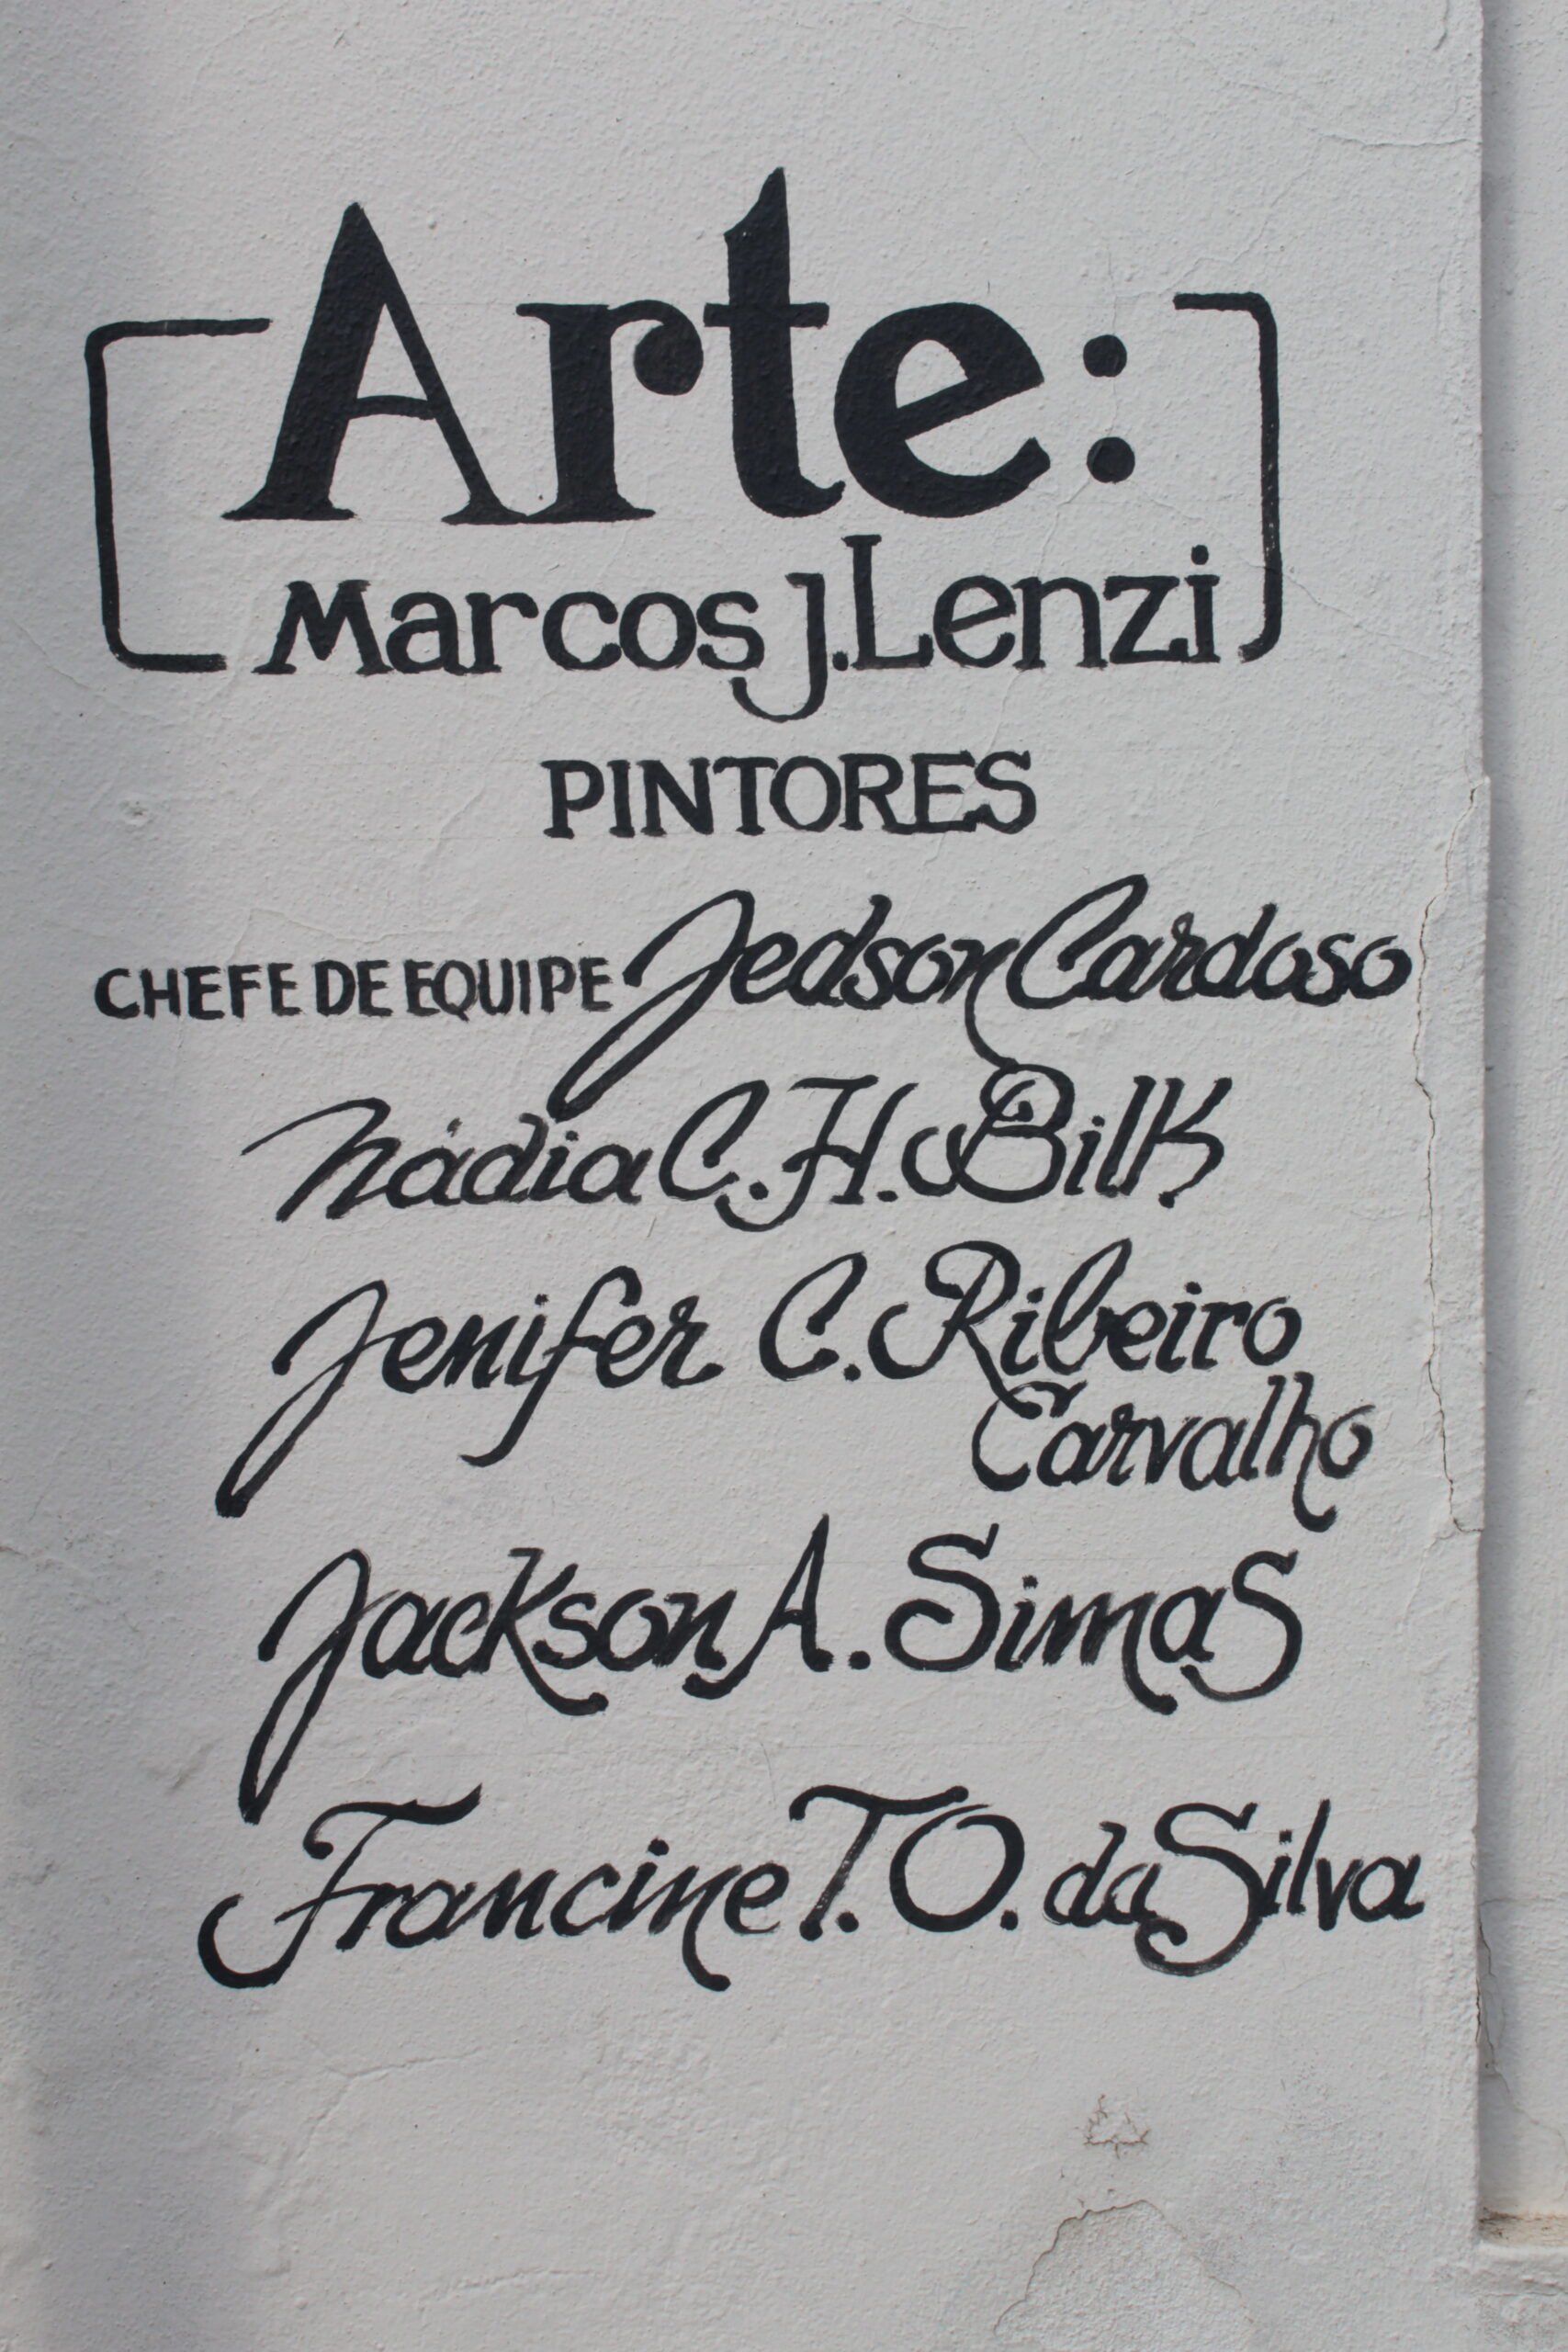 Arte:
Marcos J. Lenzi
PINTORES
CHEFE DE EQUIPE Jedson Cardoso
Nádia C. H. Bilk
Jenifer C. Ribeiro
Carvalho
Jackson A. Simas
Francine T. O. da Silva